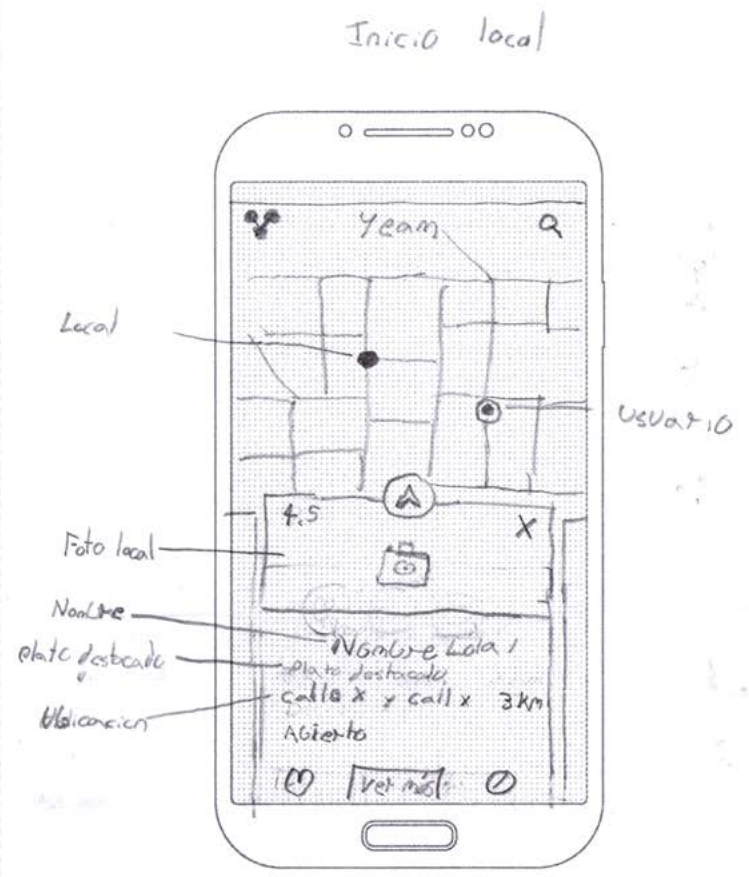 Inicio local
Yeam
Local
Usuario
4.5
X
Foto local
Nombre
Nombre Lola
plato destacado
plato destacado
calle x y call x 3 km
Ubicacion
Abierto
Ver más